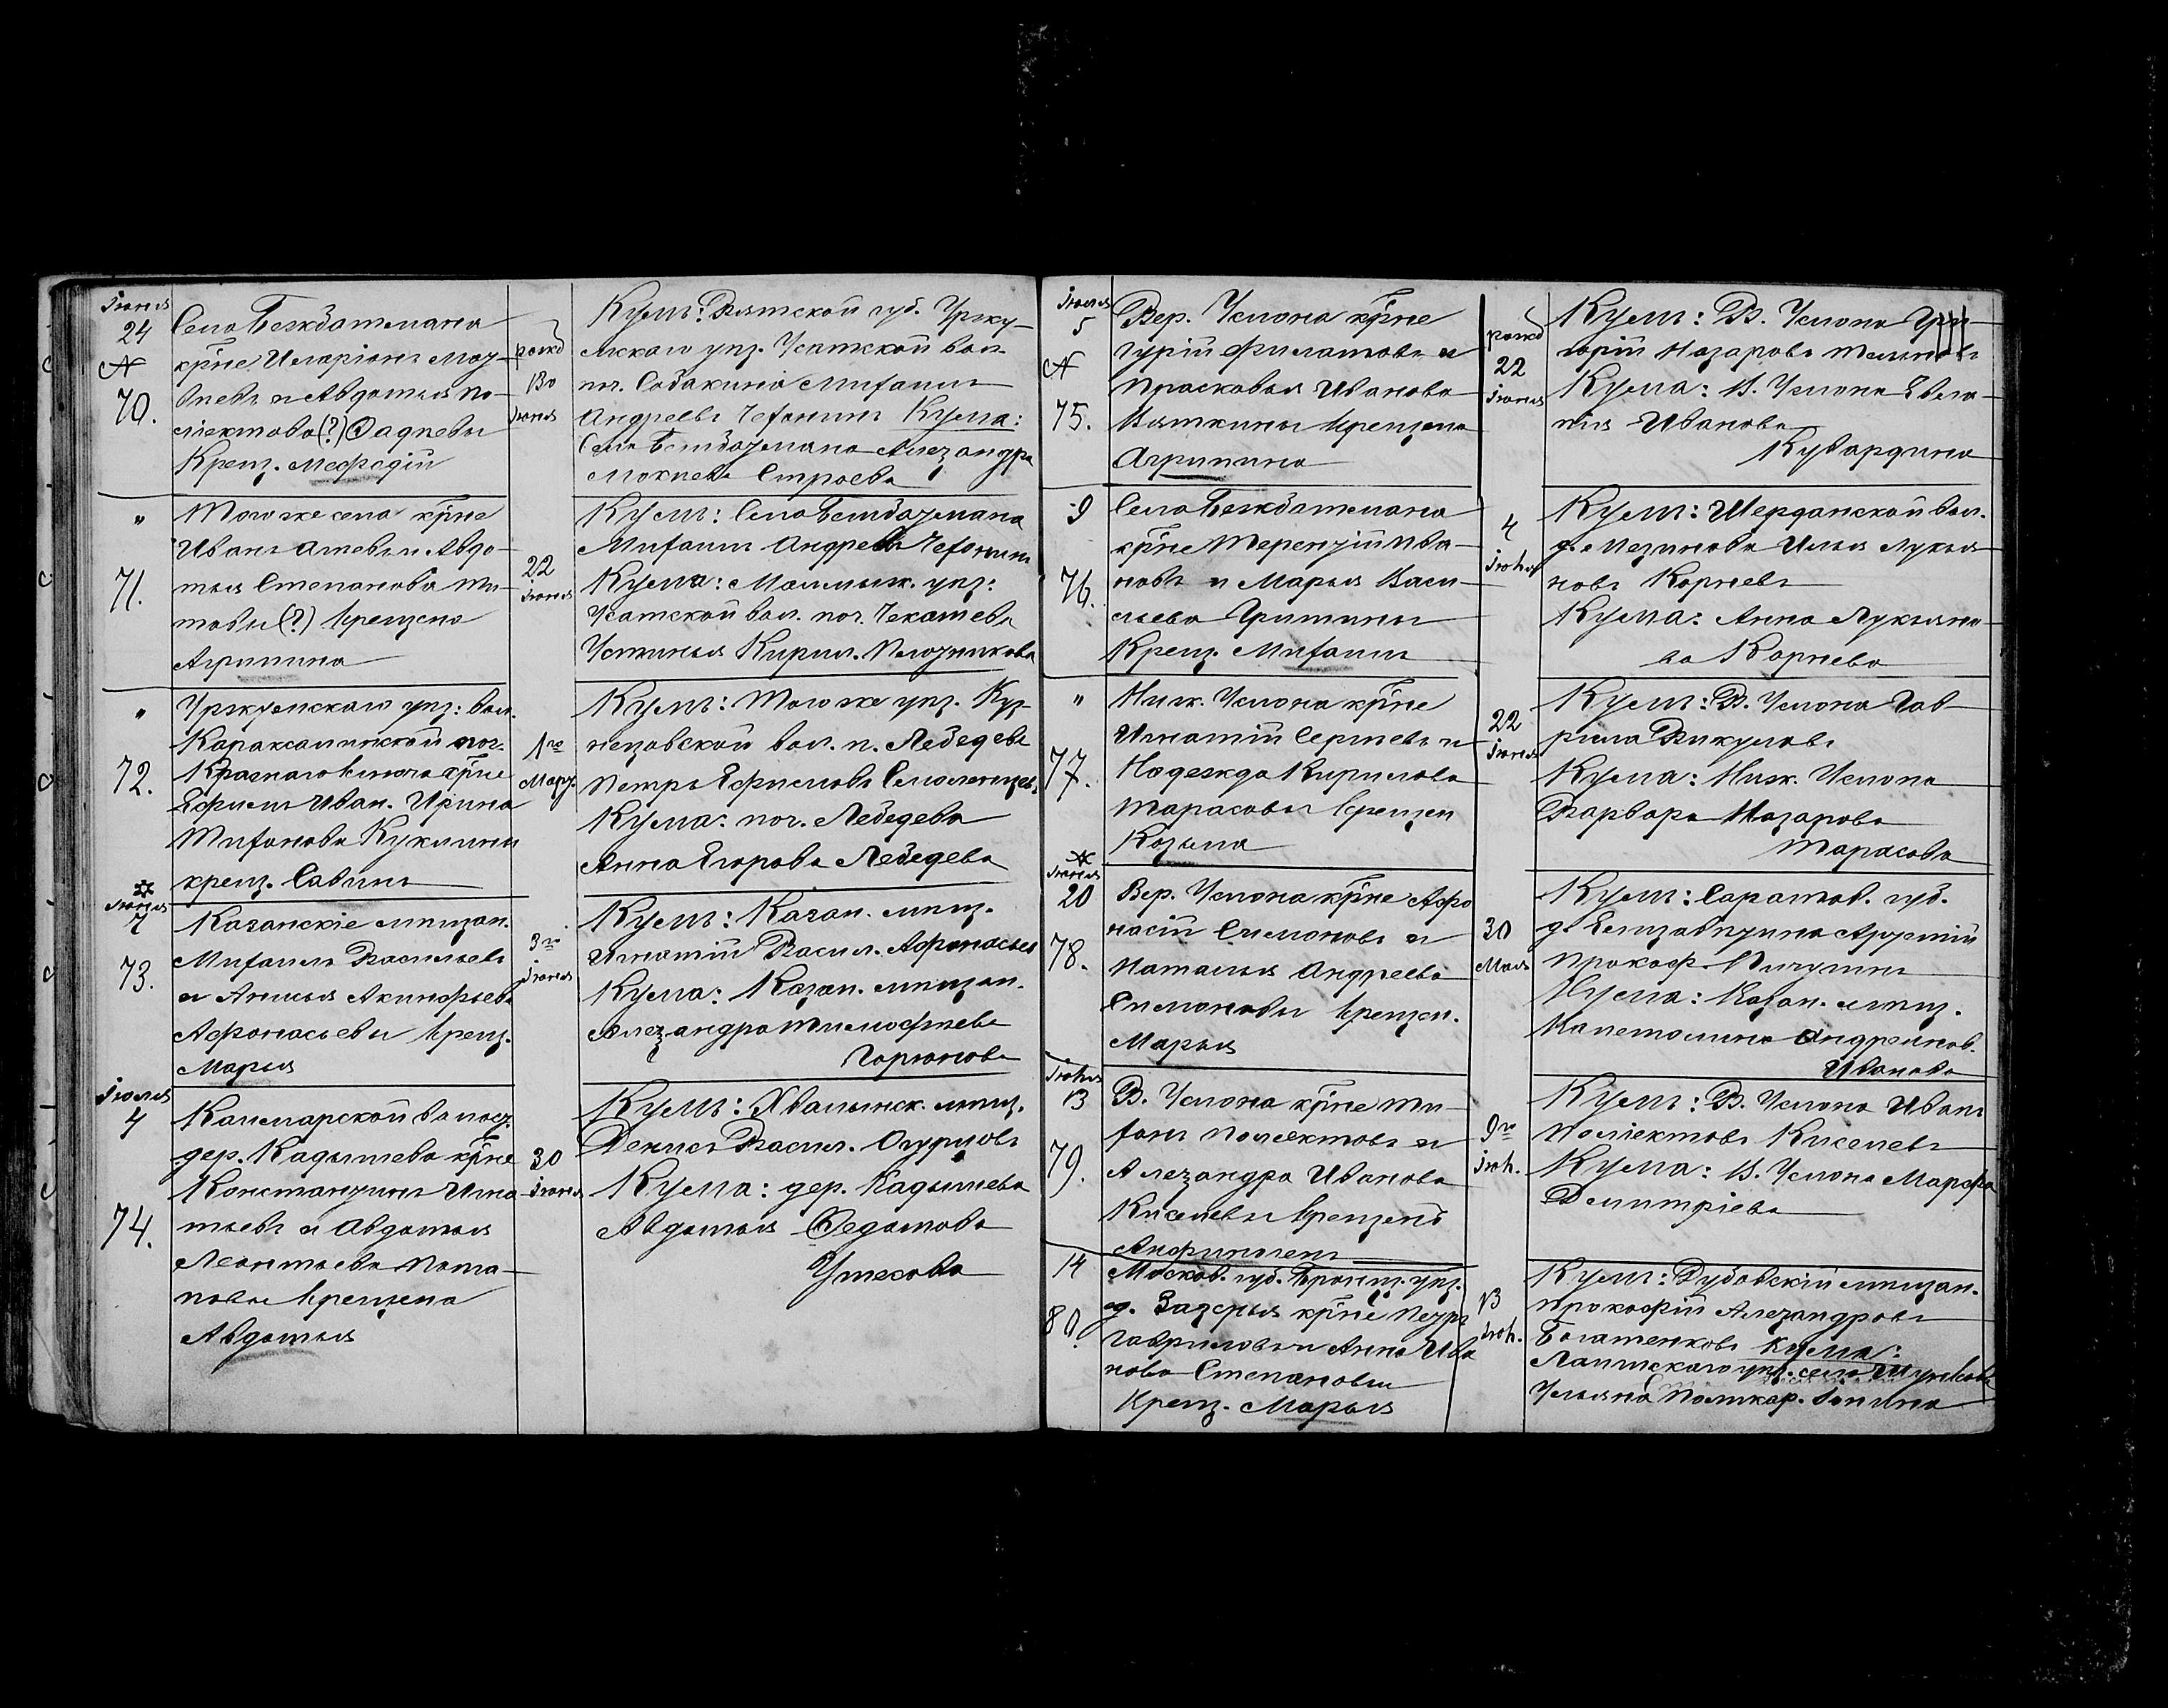 Іюня
24
70.
Село Безждатмана
кр̃не Иларіонъ Мат-
вѣевъ и Авдотья По-
ліектова (?) Фадѣевы
Крещ. Мефодій
рожд
13го
Іюня
Кумъ: Вятской губ. Уржу-
мскаго уѣз. Усатской вол.
поч. Собакина Михаилъ
Андреевъ Чефонинъ Кума:
Село Безждатмана Александра
Мокиева Строева
"
71.
Тогоже села кр̃не
Иванъ и Авдо-
тья Степанова Ти-
товы (?) Крещена
Агрипина
22
Іюня
Кумъ: Село Безждатмана
Михаилъ Андреевъ Чефонинъ
Кума: Малмыж. уѣз:
Усатской вол. поч. Чекашева
Устинья Кирил. Плотникова
"
72.
Уржумскаго уѣз: вол.
поч.
Краснаго Ключа кр̃не
Ефимъ Иван. Ирина
Тихонова Куклины
крещ. Савинъ
1го
Мар.
Кумъ: Тогоже уѣз. Куз-
нецовской вол. п. Лебедева
Петръ Ефимовъ
Кума: поч. Лебедева
Анна Егорова Лебедева
Іюня
7
73.
Казанскіе мѣщан.
Михаилъ Васильевъ
и Анисья Акинфьева
Афонасьевы Крещ.
Марья
3го
Іюня
Кумъ: Казан. мѣщ.
Игнатій Васил. Афонасьев
Кума: Казан. мѣщан.
Александра Тимофѣева
Горюнова
Іюля
4
74.
Каимарской волос.
дер. Кадышева кр̃не
Константинъ Игна-
тьевъ и Авдотья
Леонтьева Пота-
повы Крещена
Авдотья
30
Іюня
Кумъ: Хвалынск. мѣщ.
Денисъ Васил. Огурцовъ
Кума: дер. Кадышева
Авдотья Федотова
Утесова
Іюля
5
75.
Вер. Услона кр̃не
Гурій Филатовъ и
Прасковья Иванова
Вяткины Крещена
Агрипина
рожд
22
Іюня
Кумъ: В. Услона Гри-
горій Назаровъ
Кума: В. Услона Евла-
мпія Иванова
Кувардина
9
76.
Село Безждатмана
кр̃не Терентій Ива-
новъ и Марья Васи-
льева Гришины
Крещ. Михаилъ
4
іюля
Кумъ: Шерданской вол.
д. Мизинова Илья Лукья-
новъ Корневъ
Кума: Анна Лукьяно-
ва Корнева
"
77.
Ниж. Услона кр̃не
Игнатій Сергѣевъ и
Надежда Кирилова
Тарасовы Крещен
Козьма
22
Іюня
Кумъ: В. Услона Гав-
рила Викуловъ
Кума: Ниж. Услона
Варвара Назарова
Тарасова
Іюня
20
78.
Вер. Услона кр̃не Афо
насій Симоновъ и
Наталья Андреева
Симоновы Крещен.
Марья
30
Мая
Кумъ: Саратов. губ.
д. Елизаветина
Прокоф. Пичугинъ
Кума: Казан. мѣщ.
Капетолина Андреянов.
Иванова
Іюля
13
79.
В. Услона кр̃не Ти-
хонъ Поліектовъ и
Александра Иванова
Киселевы Крещенъ
Анфиногенъ
9го
Іюл.
Кумъ: В. Услона Иванъ
Поліектовъ Киселевъ
Кума: В. Услона Марфа
Димитріева
14
80.
Москов. губ. Бронниц. уѣз.
д. Заозерья кр̃не Петръ
Гавриловъ и Анна Ива
нова Степановы
Крещ. Марья
13
Іюл.
Кумъ: Дубовскій мѣщан.
Прокофій Александровъ
Богатенковъ Кума:
Лаишскаго уѣз. село
Ульяна Поликар.